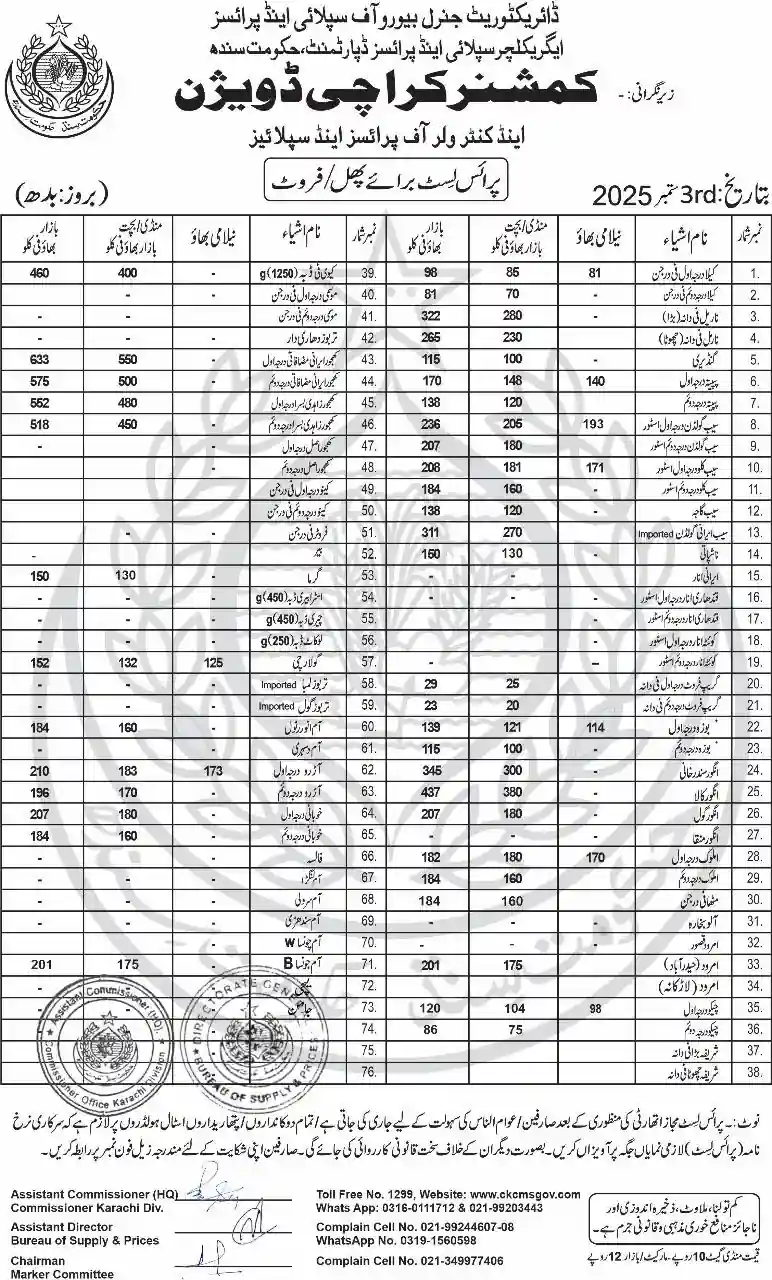 ڈائریکٹوریٹ جنرل بیورو آف سپلائی اینڈ پرائسز
ایگریکلچر سپلائی اینڈ پرائسز ڈپارٹمنٹ، حکومت سندھ
زیر نگرانی:- کمشنر کراچی ڈویژن
اینڈ کنٹرولر آف پرائسز اینڈ سپلائیز
پرائس لسٹ برائے پھل/فروٹ
بتاریخ: 3rd ستمبر 2025 (بروز: بدھ)
نمبر شمار نام اشیاء نیلامی بھاؤ منڈی/بچت بازار بھاؤ فی کلو بازار بھاؤ فی کلو
1. کیلا درجہ اول فی درجن 81 85 98
2. کیلا درجہ دوئم فی درجن - 70 81
3. ناریل فی دانہ (بڑا) - 280 322
4. ناریل فی دانہ (چھوٹا) - 230 265
5. گنڈیری - 100 115
6. پپیتہ درجہ اول 140 148 170
7. پپیتہ درجہ دوئم - 120 138
8. سیب گولڈن درجہ اول اسٹور 193 205 236
9. سیب گولڈن درجہ دوئم اسٹور - 180 207
10. سیب کلو درجہ اول اسٹور 171 181 208
11. سیب کلو درجہ دوئم اسٹور - 160 184
12. سیب گاجہ - 120 138
13. سیب ایرانی گولڈن Imported - 270 311
14. ناشپاتی - 130 150
15. ایرانی انار - - -
16. قندھاری انار درجہ اول اسٹور -
17. قندھاری انار درجہ دوئم اسٹور -
18. کوئٹہ انار درجہ اول اسٹور
19. کوئٹہ انار درجہ دوئم اسٹور - - -
20. گریپ فروٹ درجہ اول فی دانہ - 25 29
21. گریپ فروٹ درجہ دوئم فی دانہ - 20 23
22. درجہ اول 114 121 139
23. درجہ دوئم - 100 115
24. انگور سندر خانی - 300 345
25. انگور کالا - 380 437
26. انگور گول - 180 207
27. انگور منقا - - -
28. املوک درجہ اول 170 180 182
29. املوک درجہ دوئم - 160 184
30. مٹھانی درجن - 160 184
31. آلو بخارہ - - -
32. امرود قصور - - -
33. امرود (حیدرآباد) - 175 201
34. امرود (لاڑکانہ) -
35. چیکو درجہ اول 98 104 120
36. چیکو درجہ دوئم - 75 86
37. شریفہ بڑا فی دانہ -
38. شریفہ چھوٹا فی دانہ -
نمبر شمار نام اشیاء نیلامی بھاؤ منڈی/بچت بازار بھاؤ فی کلو بازار بھاؤ فی کلو
39. کیوی فی ڈبہ (1250)g - 400 460
40. موسمی درجہ اول فی درجن - - -
41. موسمی درجہ دوئم فی درجن - - -
42. تربوز دھاری دار - - -
43. کھجور ایرانی مضافاتی درجہ اول - 550 633
44. کھجور ایرانی مضافاتی درجہ دوئم - 500 575
45. کھجور زاہدی بسرا درجہ اول - 480 552
46. کھجور زاہدی بسرا درجہ دوئم - 450 518
47. کھجور اصل درجہ اول -
48. کھجور اصل درجہ دوئم -
49. کینو درجہ اول فی درجن
50. کینو درجہ دوئم فی درجن
51. فروٹر فی درجن - -
52. بیر - -
53. گرما - 130 150
54. اسٹرابیری ڈبہ (450)g - - -
55. چیری ڈبہ (450)g - - -
56. لوکاٹ ڈبہ (250)g - - -
57. گولارچی 125 132 152
58. تربوز لمبا Imported - - -
59. تربوز گول Imported - - -
60. آم انور رٹول - 160 184
61. آم دسہری - - -
62. آڑو درجہ اول 173 183 210
63. آڑو درجہ دوئم - 170 196
64. خوبانی درجہ اول - 180 207
65. خوبانی درجہ دوئم - 160 184
66. فالسہ - - -
67. آم لنگڑا - - -
68. آم سرولی - - -
69. آم سندھڑی - - -
70. آم چونسا W - - -
71. آم چونسا B - 175 201
72. لیچی - -
73. جامن - -
74.
75.
76.
Assistant Commissioner (HQ)
Commissioner Office Karachi Division
DIRECTORATE GENERAL
BUREAU OF SUPPLY & PRICES
نوٹ:- پرائس لسٹ مجاز اتھارٹی کی منظوری کے بعد صارفین/عوام الناس کی سہولت کے لیے جاری کی جاتی ہے/تمام دوکانداروں/پتھاریداروں/اسٹال ہولڈروں پر لازم ہے کہ سرکاری نرخ
نامہ (پرائس لسٹ) لازمی نمایاں جگہ پر آویزاں کریں۔ بصورت دیگر ان کے خلاف سخت قانونی کارروائی کی جائے گی۔ صارفین اپنی شکایت کے لئے مندرجہ زیل فون نمبر پر رابطہ کریں۔
Assistant Commissioner (HQ)
Commissioner Karachi Div.
Assistant Director
Bureau of Supply & Prices
Chairman
Marker Committee
Toll Free No. 1299, Website: www.ckcmsgov.com
Whats App: 0316-0111712 & 021-99203443
Complain Cell No. 021-99244607-08
WhatsApp No. 0319-1560598
Complain Cell No. 021-349977406
کم تولنا، ملاوٹ، ذخیرہ اندوزی اور
ناجائز منافع خوری مذہبی و قانونی جرم ہے۔
قیمت منڈی گیٹ 10 روپے۔ مارکیٹ/بازار 12 روپے